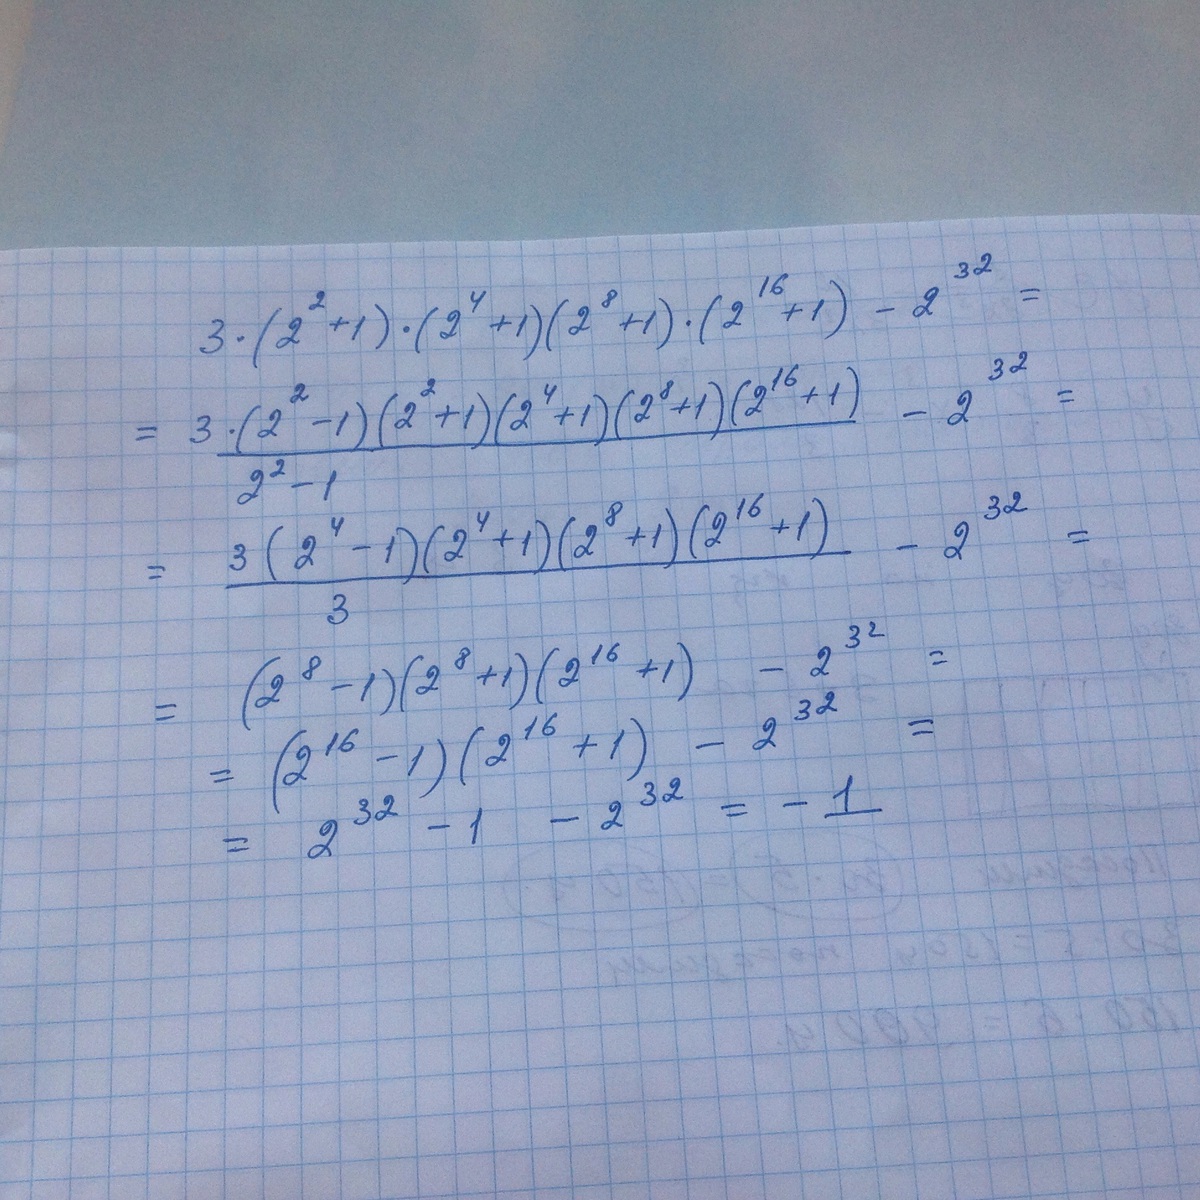 3·(2²+1)·(2⁴+1)(2⁸+1)·(2¹⁶+1) − 2³² =
= 3·(2²−1)(2²+1)(2⁴+1)(2⁸+1)(2¹⁶+1) − 2³² =
2²−1
= 3(2⁴−1)(2⁴+1)(2⁸+1)(2¹⁶+1) − 2³² =
3
= (2⁸−1)(2⁸+1)(2¹⁶+1) − 2³² =
= (2¹⁶−1)(2¹⁶+1) − 2³² =
= 2³²−1 − 2³² = −1